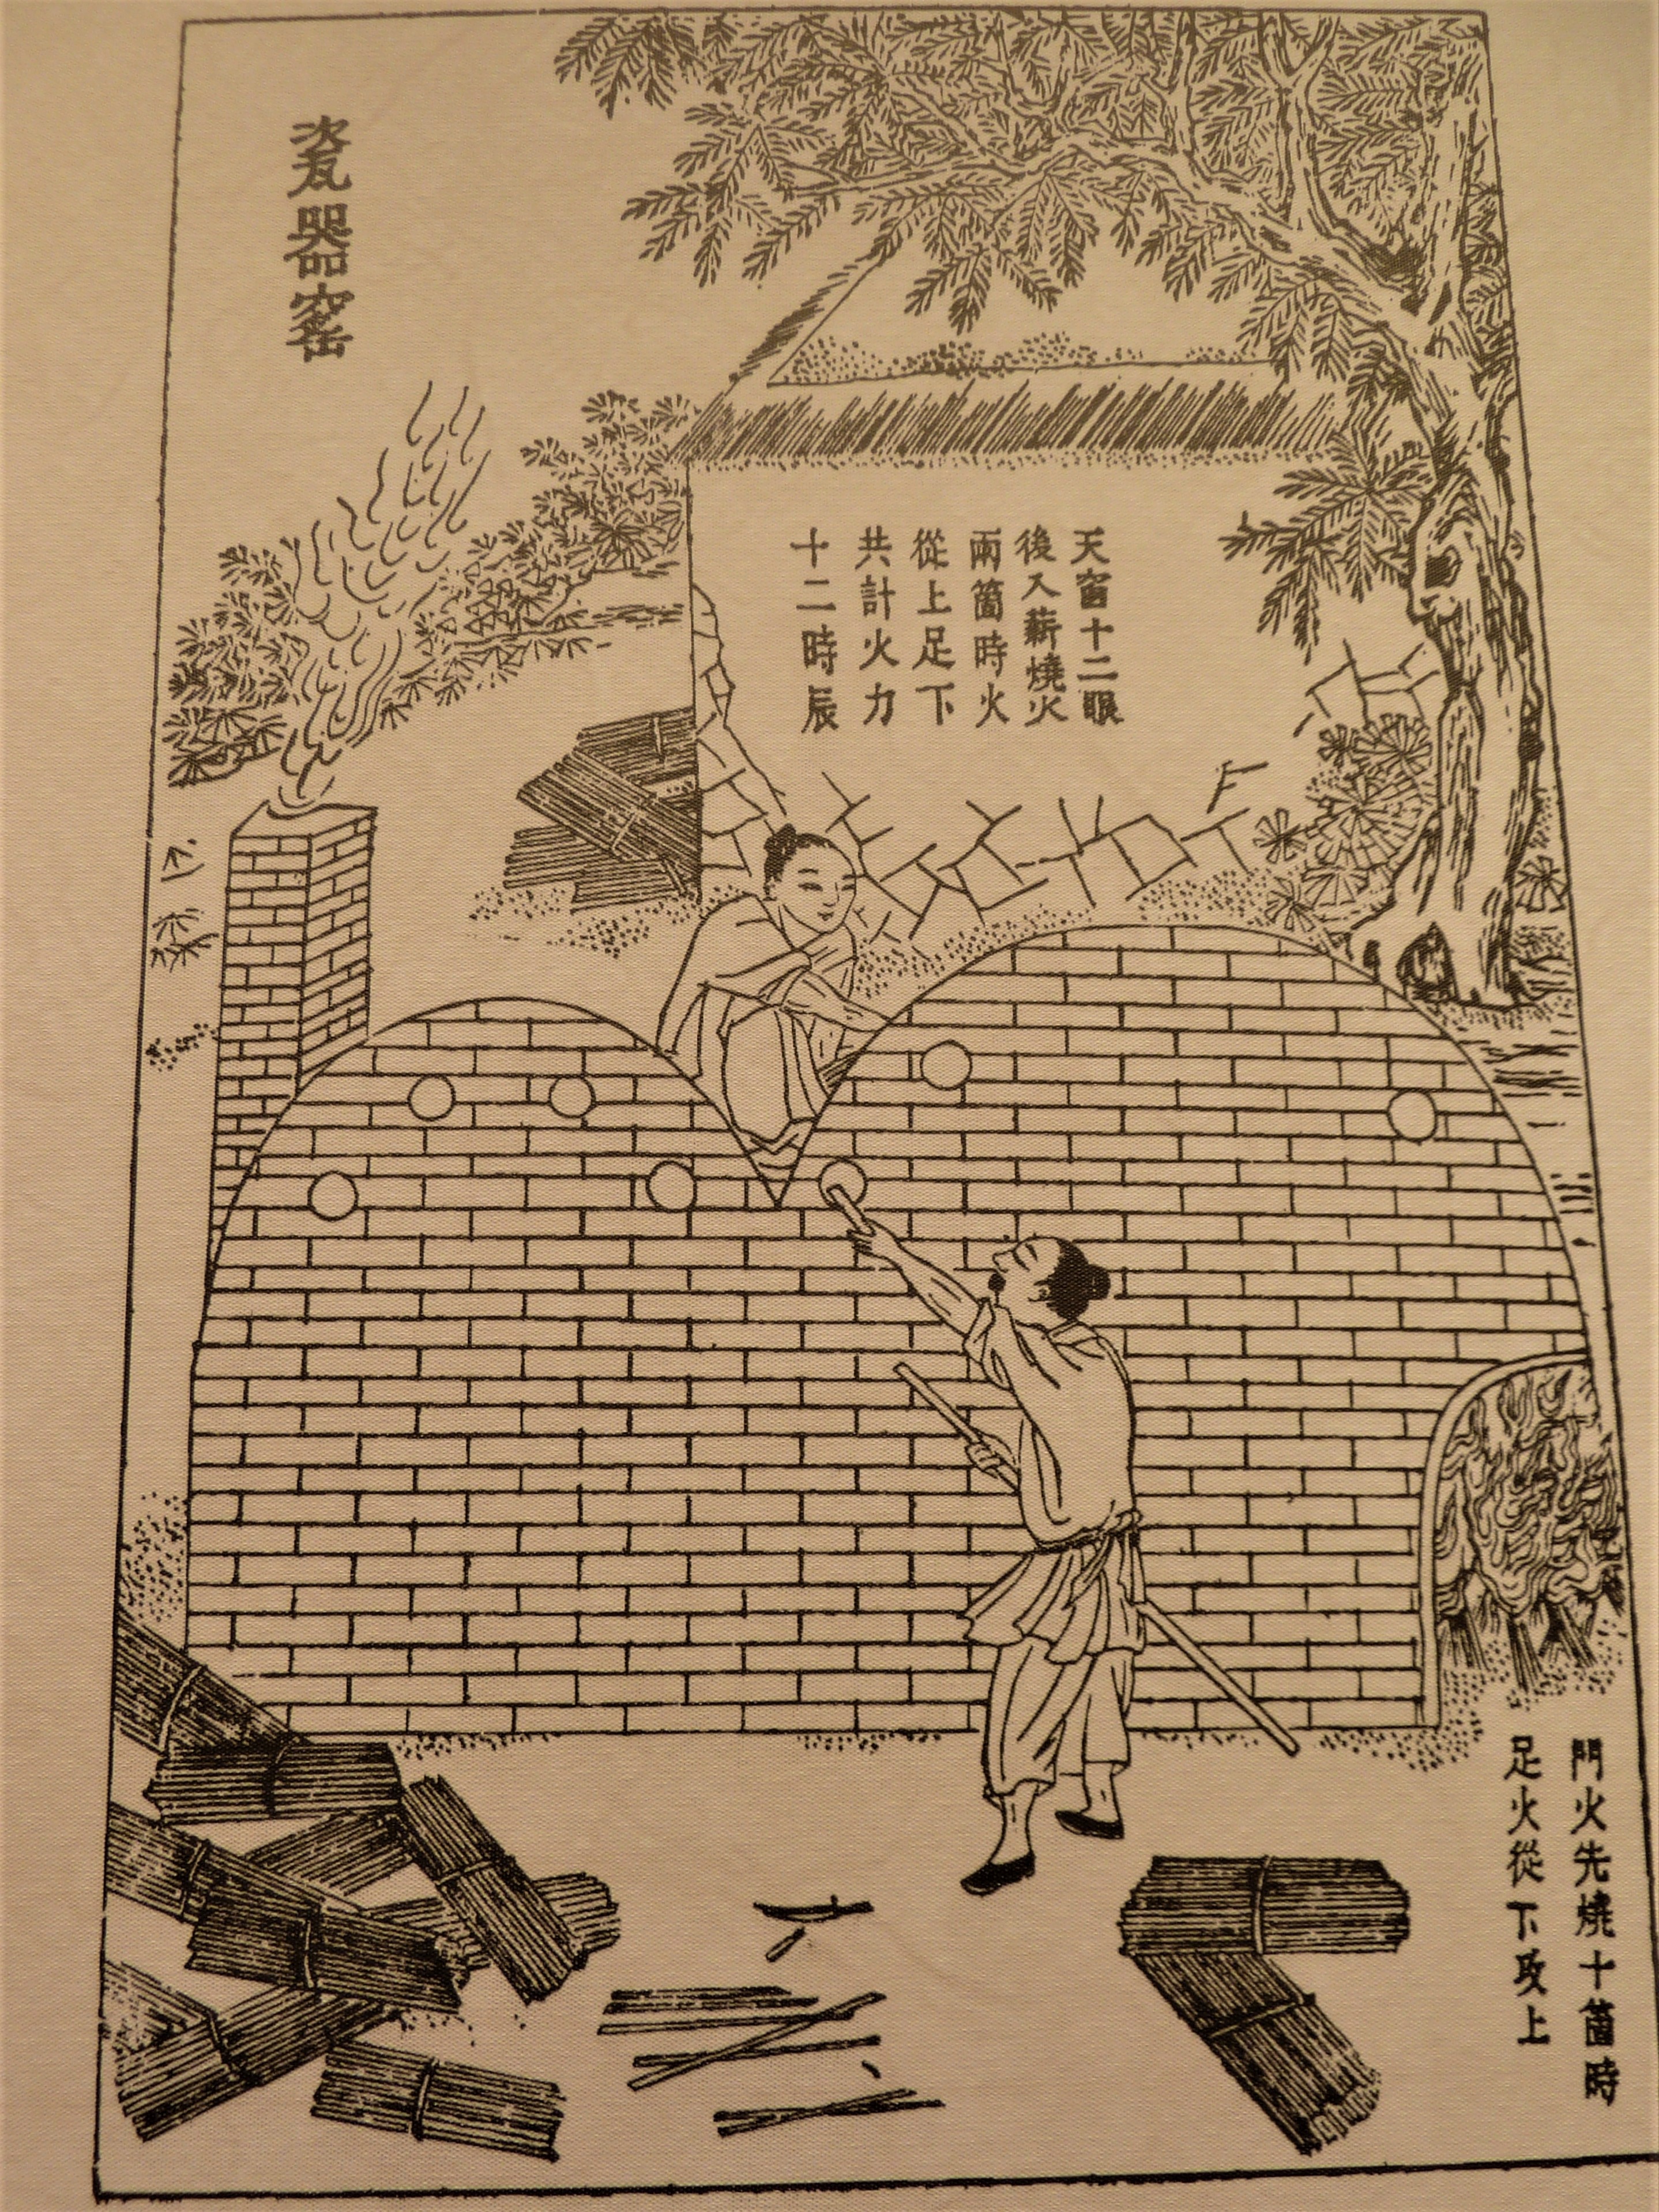 門火先燒十箇時
足火從下攻上
天窗十二眼
後入薪燒火
兩箇時火
從上足下
共計火力
十二時辰
瓷器窰